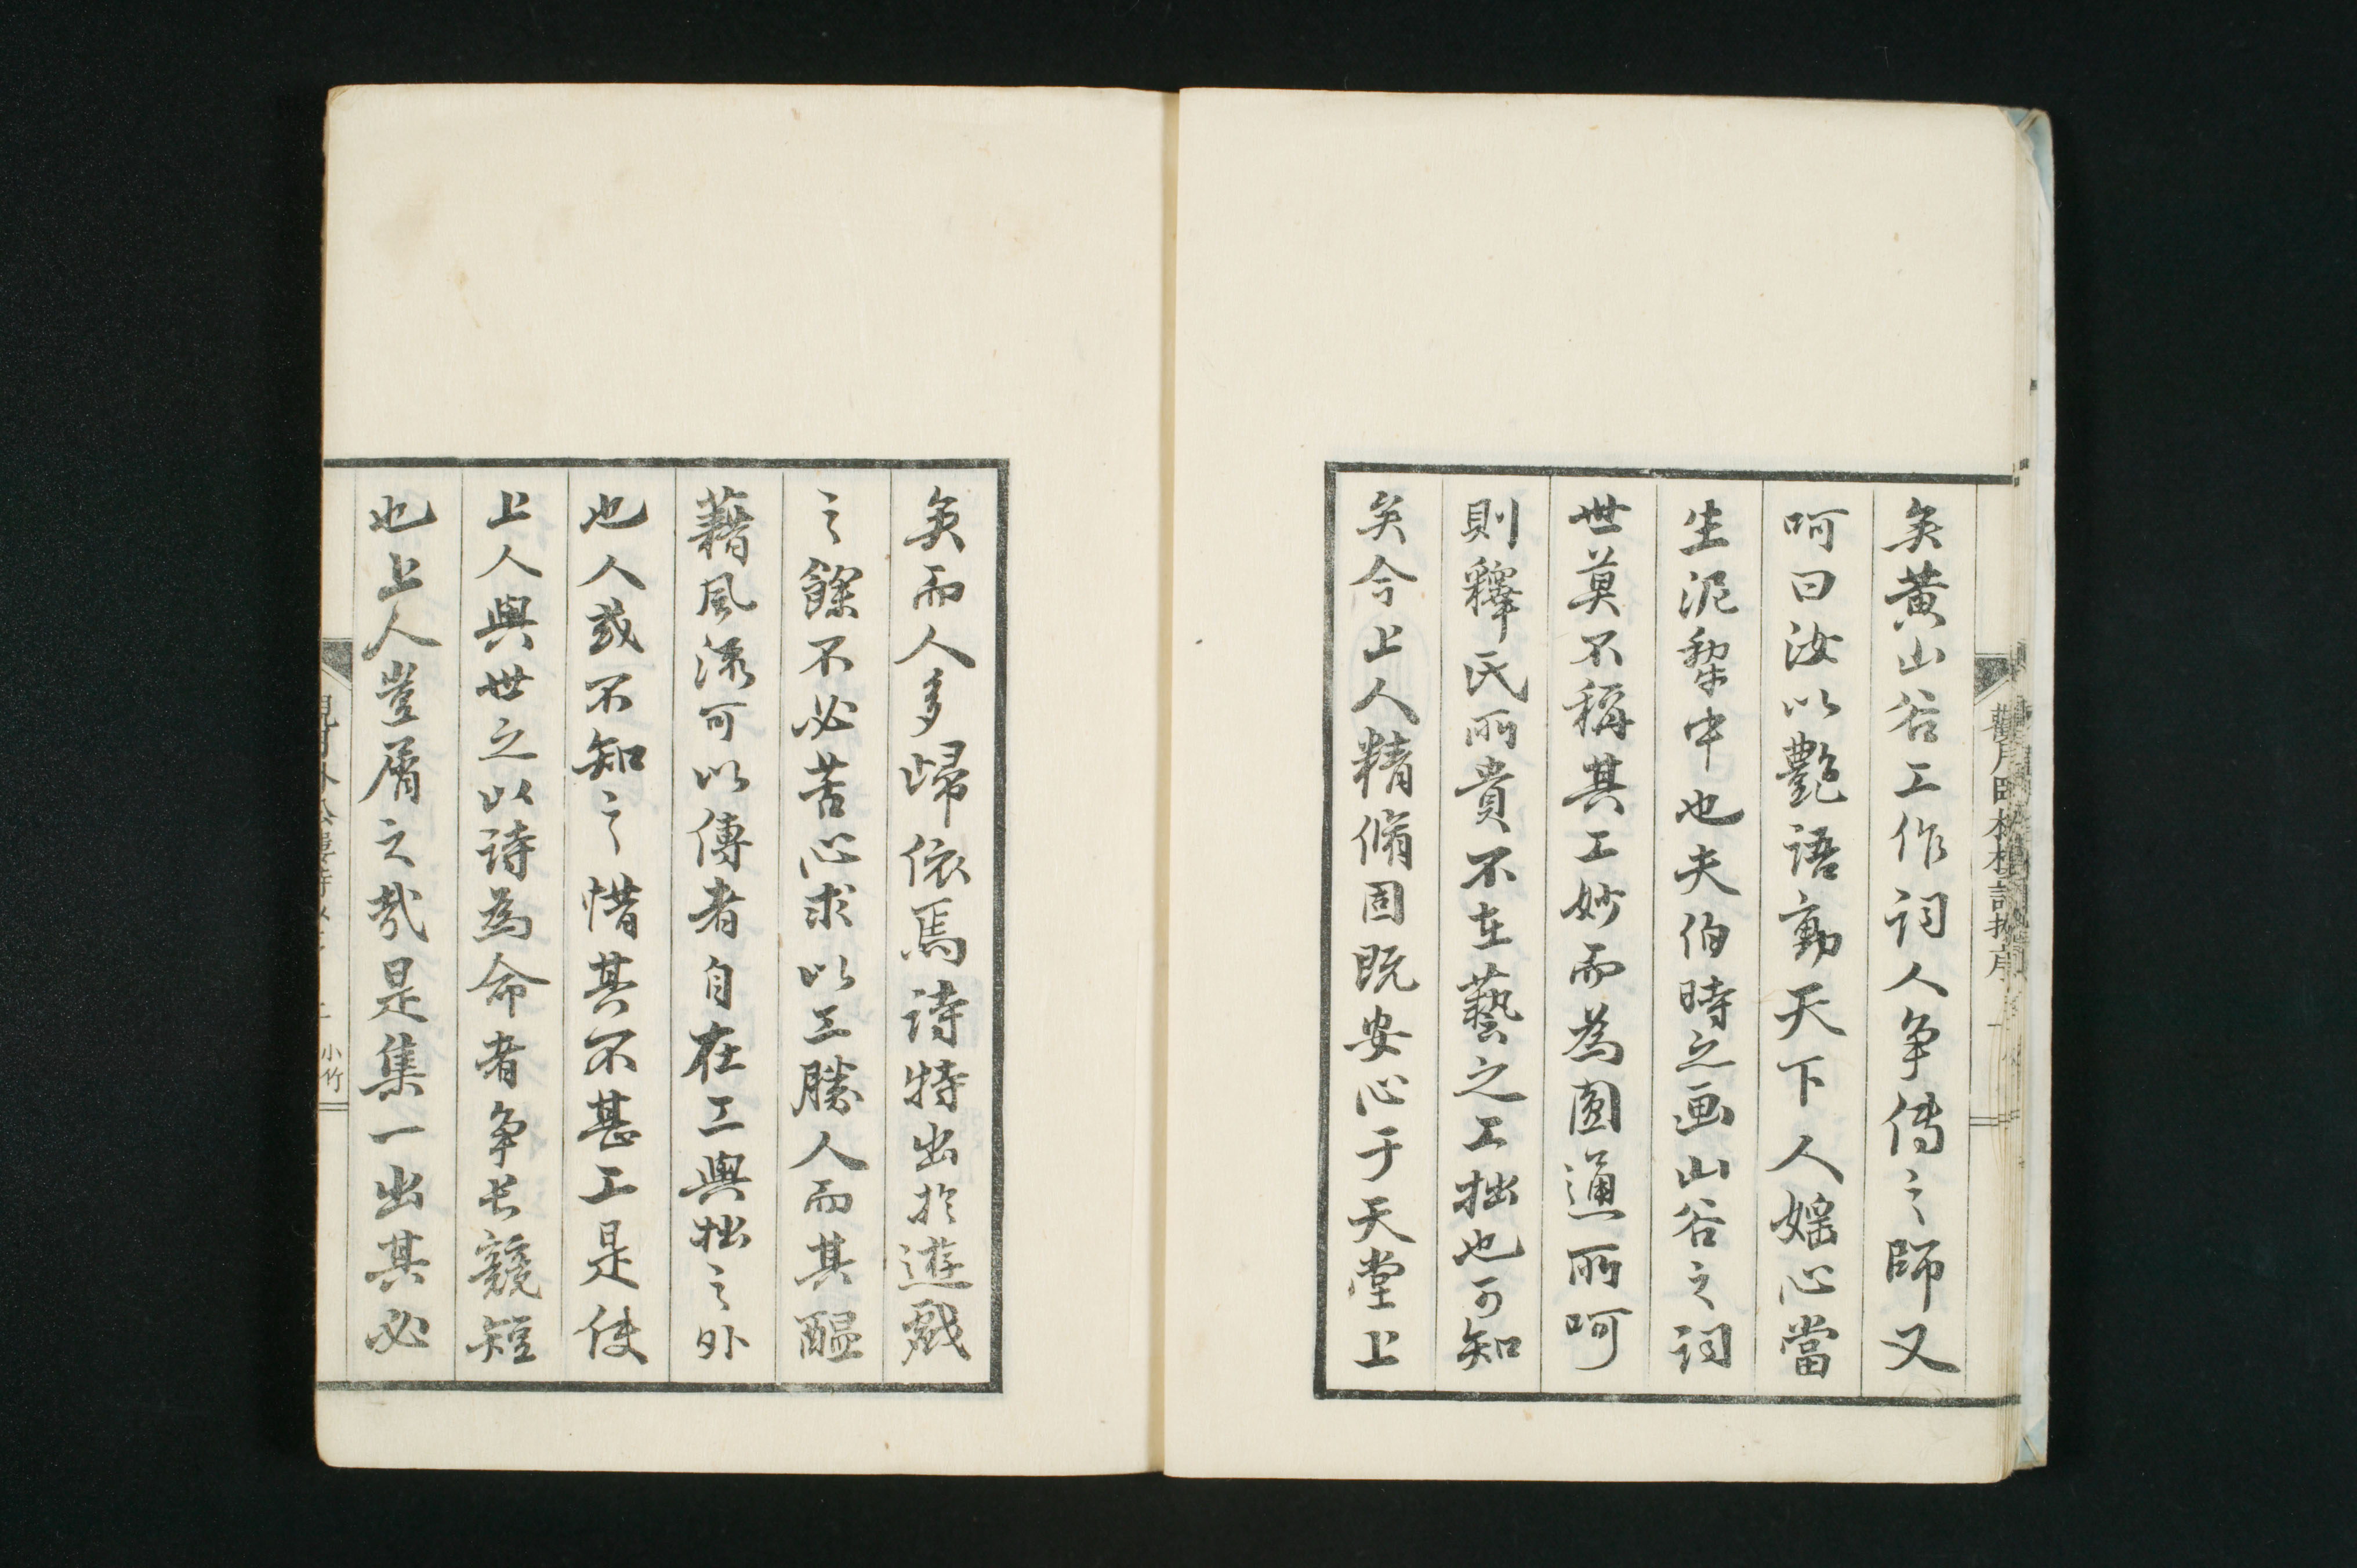 矣黄山谷工作詞人争傳之師又
呵曰汝以艶語動天下人婬心當
生泥犂中也夫伯時之画山谷之詞
世莫不稱其工妙而為圓通所呵
則釋氏所貴不在藝之工拙也可知
矣今上人精脩固既安心于天堂上
矣而人多歸依焉詩特出於遊戯
之餘不必苦心求以工勝人而其醖
藉風流可以傳者自在工與拙之外
也人或不知之惜其不甚工是使
上人與世之以詩為命者争長競短
也上人豈屑之哉是集一出其必
小竹